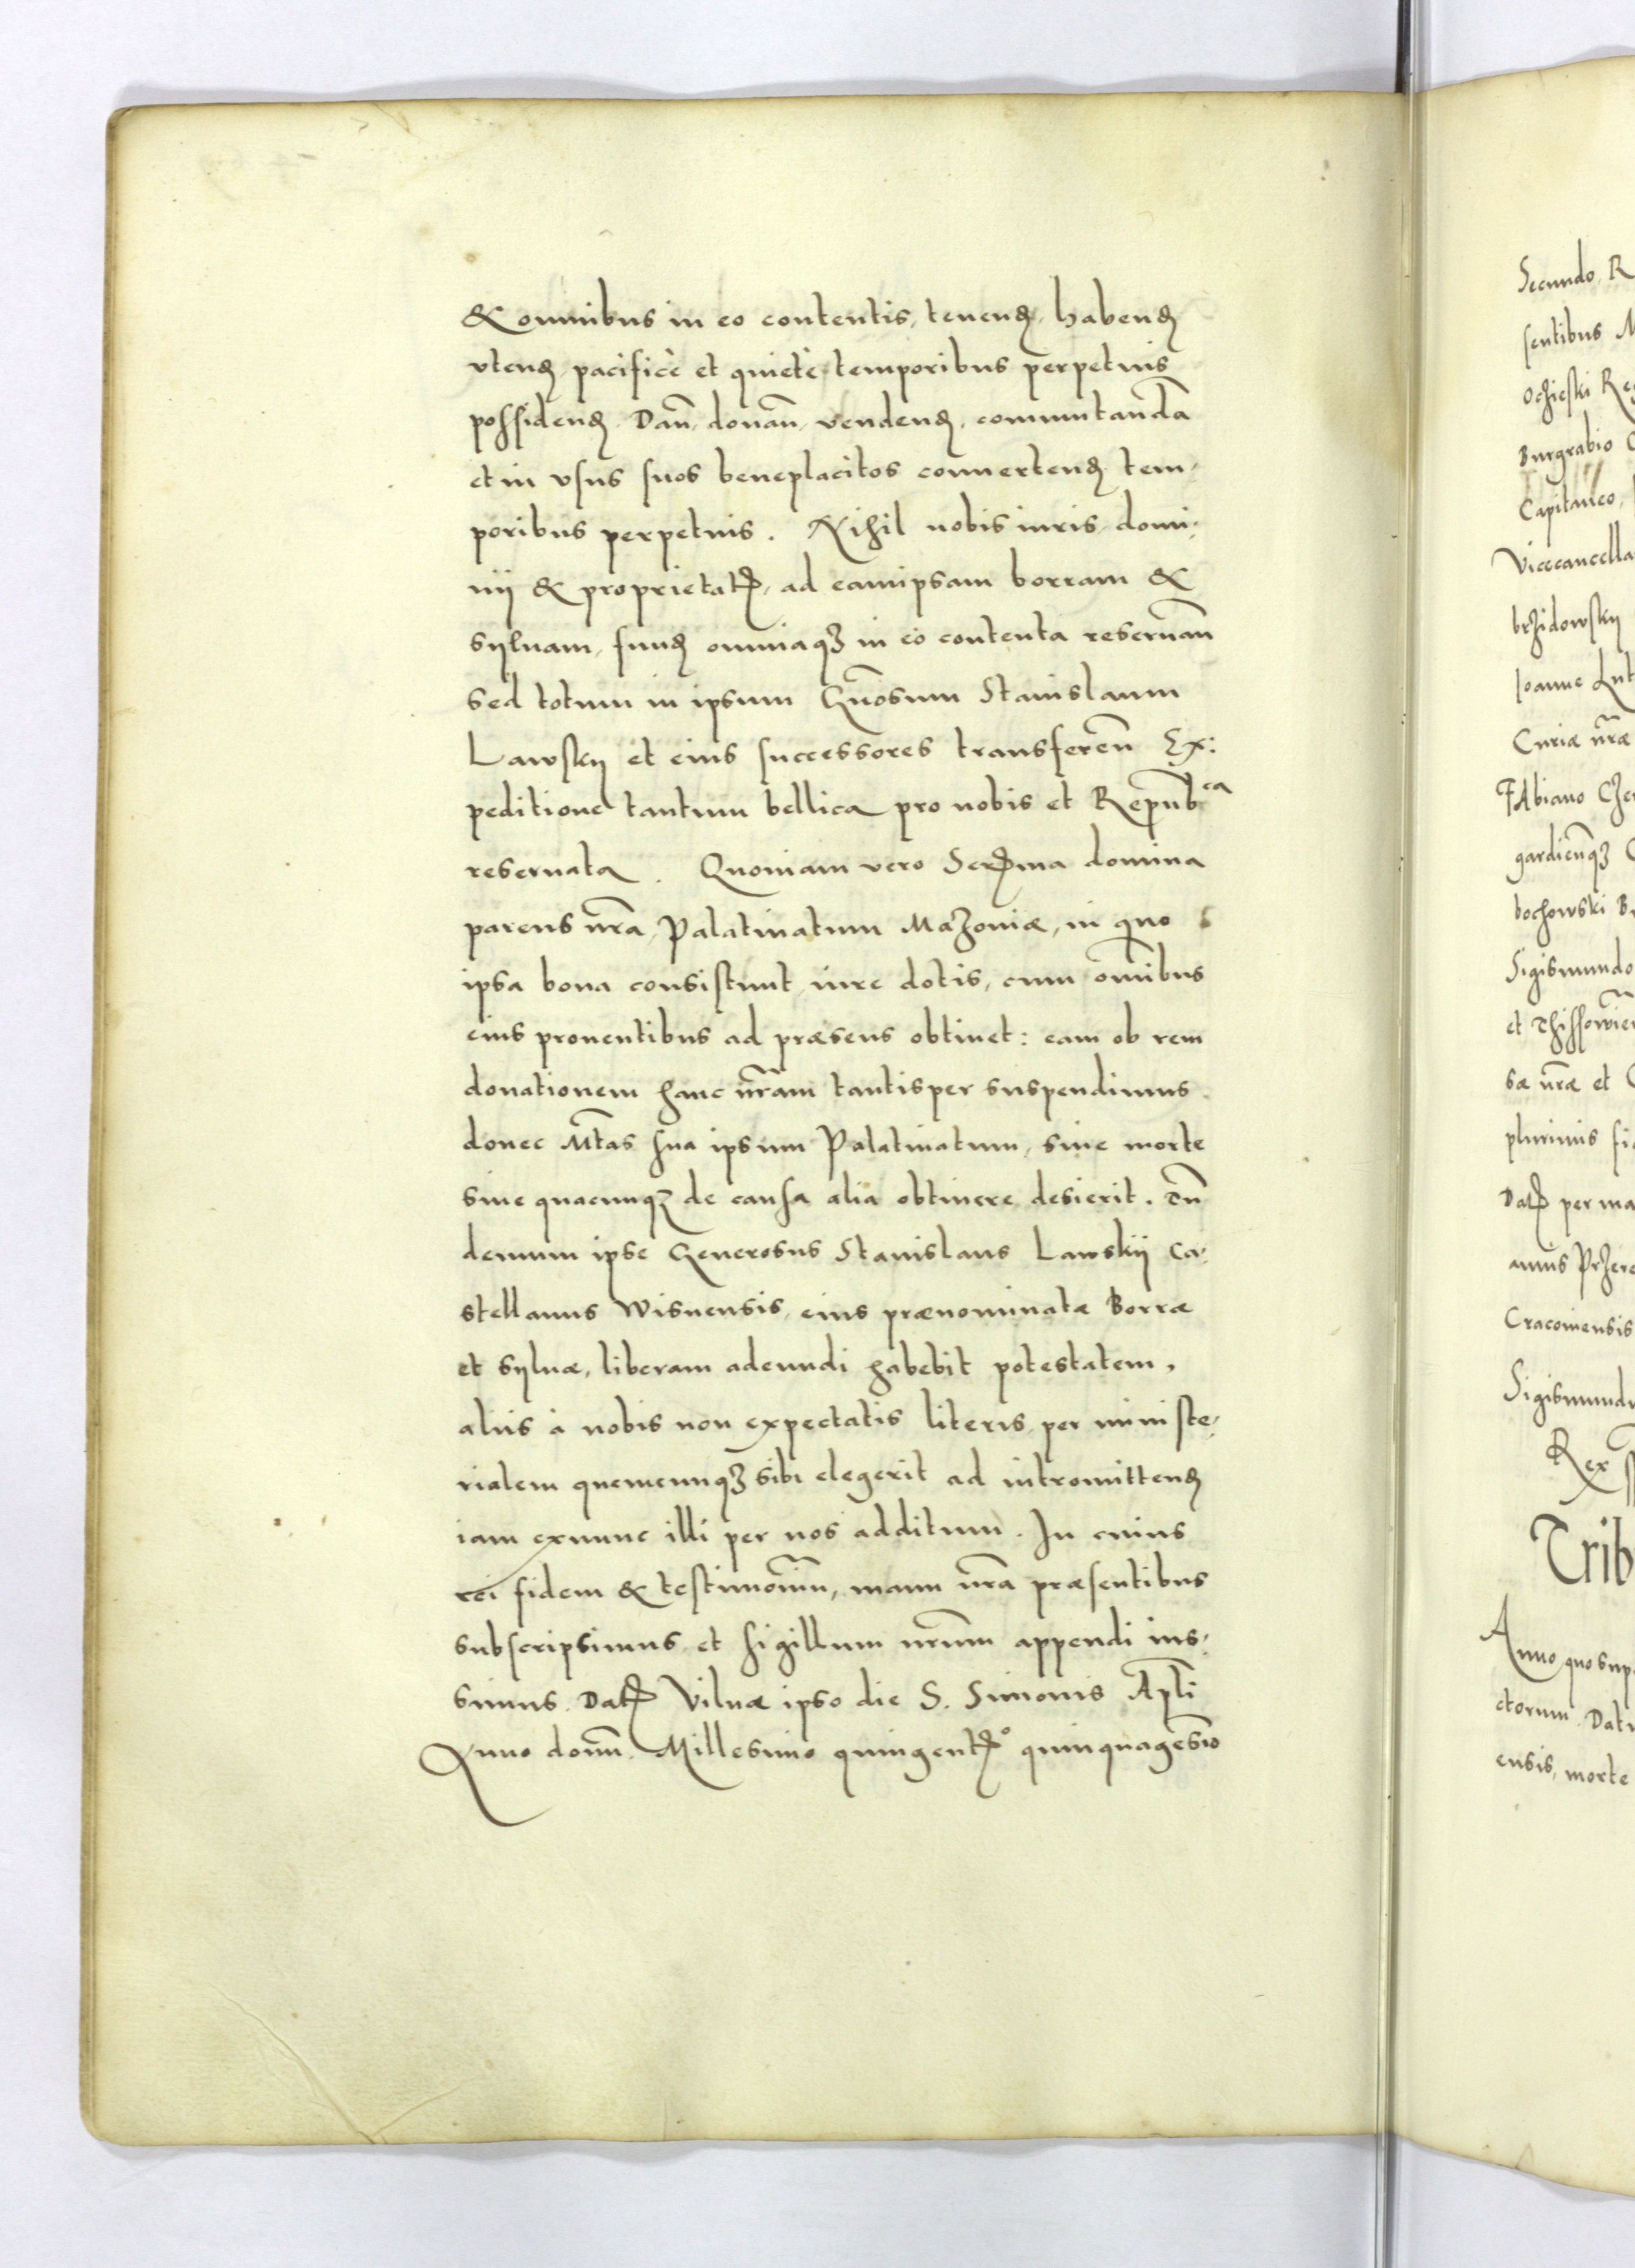 & omnibus in eo contentis, tenend, habend
vtend, pacificè et quietè temporibus perpetuis
possidend. Dan̄, donan̄, vendend, commutanda
et in vsus suos beneplacitos conuertend tem,
poribus perpetuis. Nihil nobis iuris, domi,
nij & proprietat̄, ad eamipsam borram &
syluam, fund omniaqȝ in eo contenta reseruan̄
sed totum in ipsum Gn̄osum Stanislaum
Lawskij et eius successores transferen̄ Ex:
peditione tantum bellica pro nobis et Repub^ca
reseruata. Quoniam vero Ser̄ma domina
parens nr̄a, Palatinatum Mazouiæ, in quo
ipsa bona consistunt, iure dotis, cum om̄ibus
eius prouentibus ad præsens obtinet: eam ob rem
donationem hanc nr̄am tantisper suspendimus.
donec Mt̄as sua ipsum Palatinatum, siue morte
siue quacunqȝ de causa alia obtinere desierit. Tn̄
demum ipse Generosus Stanislaus Lawskij Ca,
stellanus Wisnensis, eius prænominatæ Borræ
et syluæ, liberam adeundi habebit potestatem,
alijs à nobis non expectatis literis, per ministe,
rialem quemcunqȝ sibi elegerit ad intromittend
iam exnunc illi per nos additum. In cuius
rei fidem & testimoniu̅, manu nr̄a præsentibus
subscripsimus, et sigillum nr̄um appendi ius,
simus. Dat̄ Vilnæ ipso die S. Simonis Apl̄i
Anno domī. Millesimo quingent̄° quinquagesīo
Secundo, R
sentibus M
Ochieski Re
Burgrabio C
Capitaneo,
Vicecancella
brzidowskij
Ioanne Lut
Curiæ nr̄æ
Fabiano Cze
gardien̄qȝ C
bochowski B
Sigismundo
sæ nr̄æ et C
plurimis fi
Dat̄ per ma
annis Przere
Cracouiensis
Sigismundu
Rex
Trib
Anno quo sup
ctorum. Dat
ensis, morte